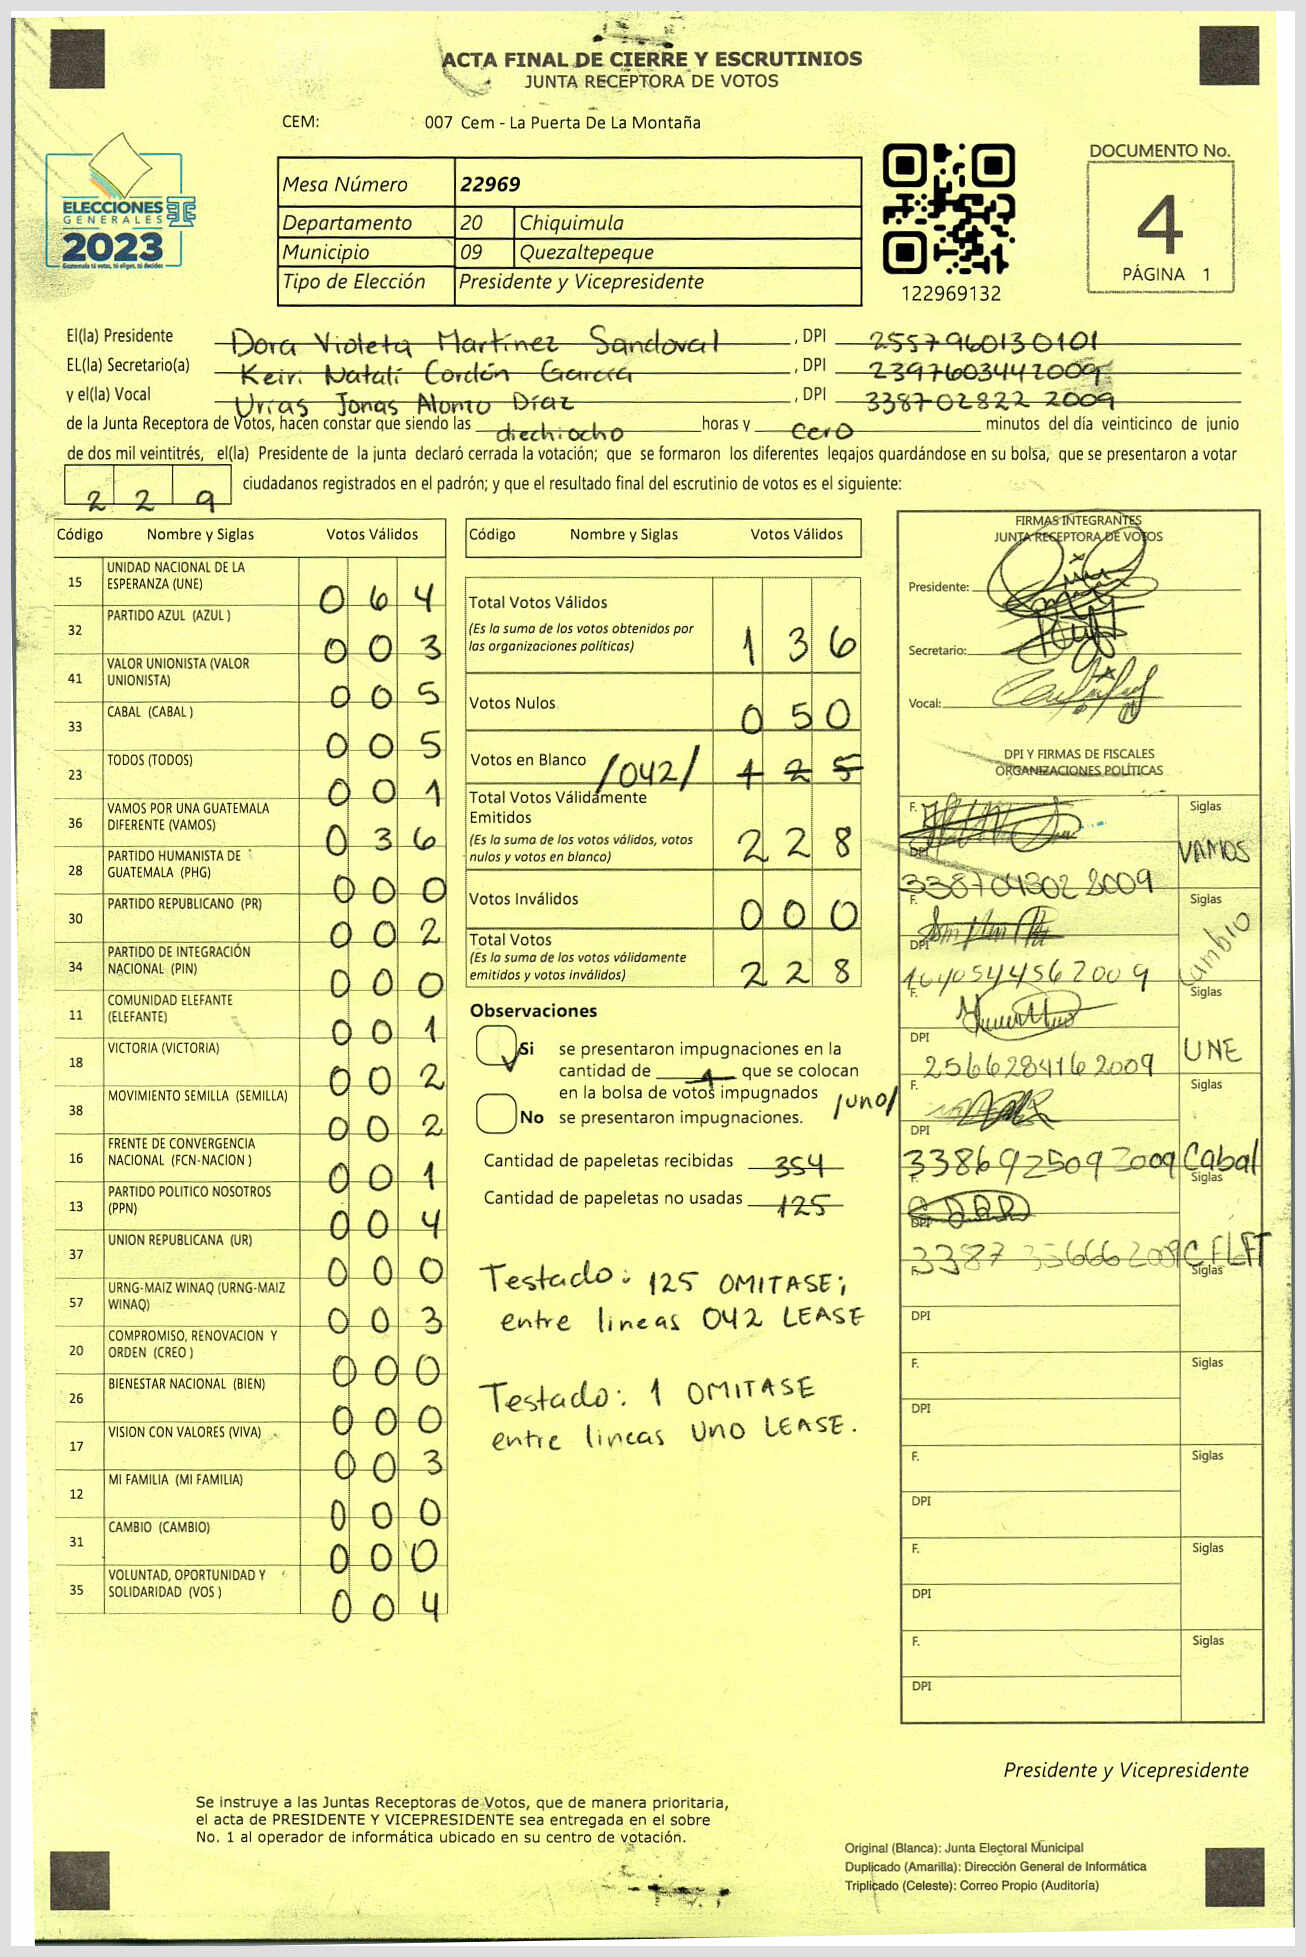 ACTA FINAL DE CIERRE Y ESCRUTINIOS
JUNTA RECEPTORA DE VOTOS
CEM: 007 Cem - La Puerta De La Montaña
ELECCIONES
GENERALES
2023
Guatemala tú votas, tú eliges, tú decides
Mesa Número 22969
Departamento 20 Chiquimula
Municipio 09 Quezaltepeque
Tipo de Elección Presidente y Vicepresidente
122969132
DOCUMENTO No.
4
PÁGINA 1
El(la) Presidente Dora Violeta Martínez Sandoval, DPI 2557960130101
EL(la) Secretario(a) Keiri Natalí Cordón García, DPI 2397603442009
y el(la) Vocal Urías Jonas Alonzo Díaz, DPI 338702822 2009
de la Junta Receptora de Votos, hacen constar que siendo las diechiocho horas y cero minutos del día veinticinco de junio
de dos mil veintitrés, el(la) Presidente de la junta declaró cerrada la votación; que se formaron los diferentes legajos guardándose en su bolsa, que se presentaron a votar
229 ciudadanos registrados en el padrón; y que el resultado final del escrutinio de votos es el siguiente:
Código Nombre y Siglas Votos Válidos
15 UNIDAD NACIONAL DE LA ESPERANZA (UNE) 064
32 PARTIDO AZUL (AZUL ) 003
41 VALOR UNIONISTA (VALOR UNIONISTA) 005
33 CABAL (CABAL ) 005
23 TODOS (TODOS) 001
36 VAMOS POR UNA GUATEMALA DIFERENTE (VAMOS) 036
28 PARTIDO HUMANISTA DE GUATEMALA (PHG) 000
30 PARTIDO REPUBLICANO (PR) 002
34 PARTIDO DE INTEGRACIÓN NACIONAL (PIN) 000
11 COMUNIDAD ELEFANTE (ELEFANTE) 001
18 VICTORIA (VICTORIA) 002
38 MOVIMIENTO SEMILLA (SEMILLA) 002
16 FRENTE DE CONVERGENCIA NACIONAL (FCN-NACION ) 001
13 PARTIDO POLITICO NOSOTROS (PPN) 004
37 UNION REPUBLICANA (UR) 000
57 URNG-MAIZ WINAQ (URNG-MAIZ WINAQ) 003
20 COMPROMISO, RENOVACION Y ORDEN (CREO ) 000
26 BIENESTAR NACIONAL (BIEN) 000
17 VISION CON VALORES (VIVA) 003
12 MI FAMILIA (MI FAMILIA) 000
31 CAMBIO (CAMBIO) 000
35 VOLUNTAD, OPORTUNIDAD Y SOLIDARIDAD (VOS ) 004
Código Nombre y Siglas Votos Válidos
Total Votos Válidos 136
(Es la suma de los votos obtenidos por
las organizaciones políticas)
Votos Nulos 050
Votos en Blanco /042/ 125
Total Votos Válidamente
Emitidos 228
(Es la suma de los votos válidos, votos
nulos y votos en blanco)
Votos Inválidos 000
Total Votos 228
(Es la suma de los votos válidamente
emitidos y votos inválidos)
Observaciones
Si se presentaron impugnaciones en la
cantidad de 1 que se colocan
en la bolsa de votos impugnados /uno/
No se presentaron impugnaciones.
Cantidad de papeletas recibidas 354
Cantidad de papeletas no usadas 125
Testado: 125 OMITASE;
entre lineas 042 LEASE
Testado: 1 OMITASE
entre lineas UNO LEASE.
FIRMAS INTEGRANTES
JUNTA RECEPTORA DE VOTOS
Presidente:
Secretario:
Vocal:
DPI Y FIRMAS DE FISCALES
ORGANIZACIONES POLÍTICAS
F. Siglas VAMOS
DPI 338704302 2009
F. Siglas Cambio
DPI 1640544562009
F. Siglas UNE
DPI 2566284162009
F. Siglas Cabal
DPI 3386925092009
F. Siglas
DPI 3387 35666 2009
F. Siglas
DPI
F. Siglas
DPI
F. Siglas
DPI
F. Siglas
DPI
F. Siglas
DPI
Presidente y Vicepresidente
Se instruye a las Juntas Receptoras de Votos, que de manera prioritaria,
el acta de PRESIDENTE Y VICEPRESIDENTE sea entregada en el sobre
No. 1 al operador de informática ubicado en su centro de votación.
Original (Blanca): Junta Electoral Municipal
Duplicado (Amarilla): Dirección General de Informática
Triplicado (Celeste): Correo Propio (Auditoría)